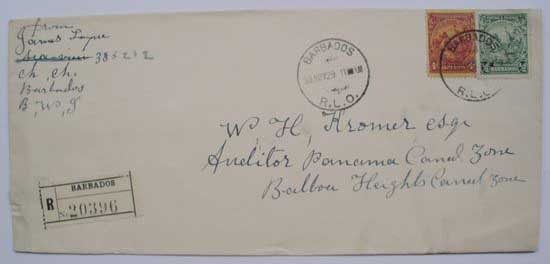 From
James Payne
383212
Ch, Ch.
Barbados
B, W, I
BARBADOS
R.L.O.
BARBADOS
R.L.O.
W, H, Kromer esqr
Auditor Panama Canal Zone
Balboa Heights Canal Zone
BARBADOS
R
No. 20396